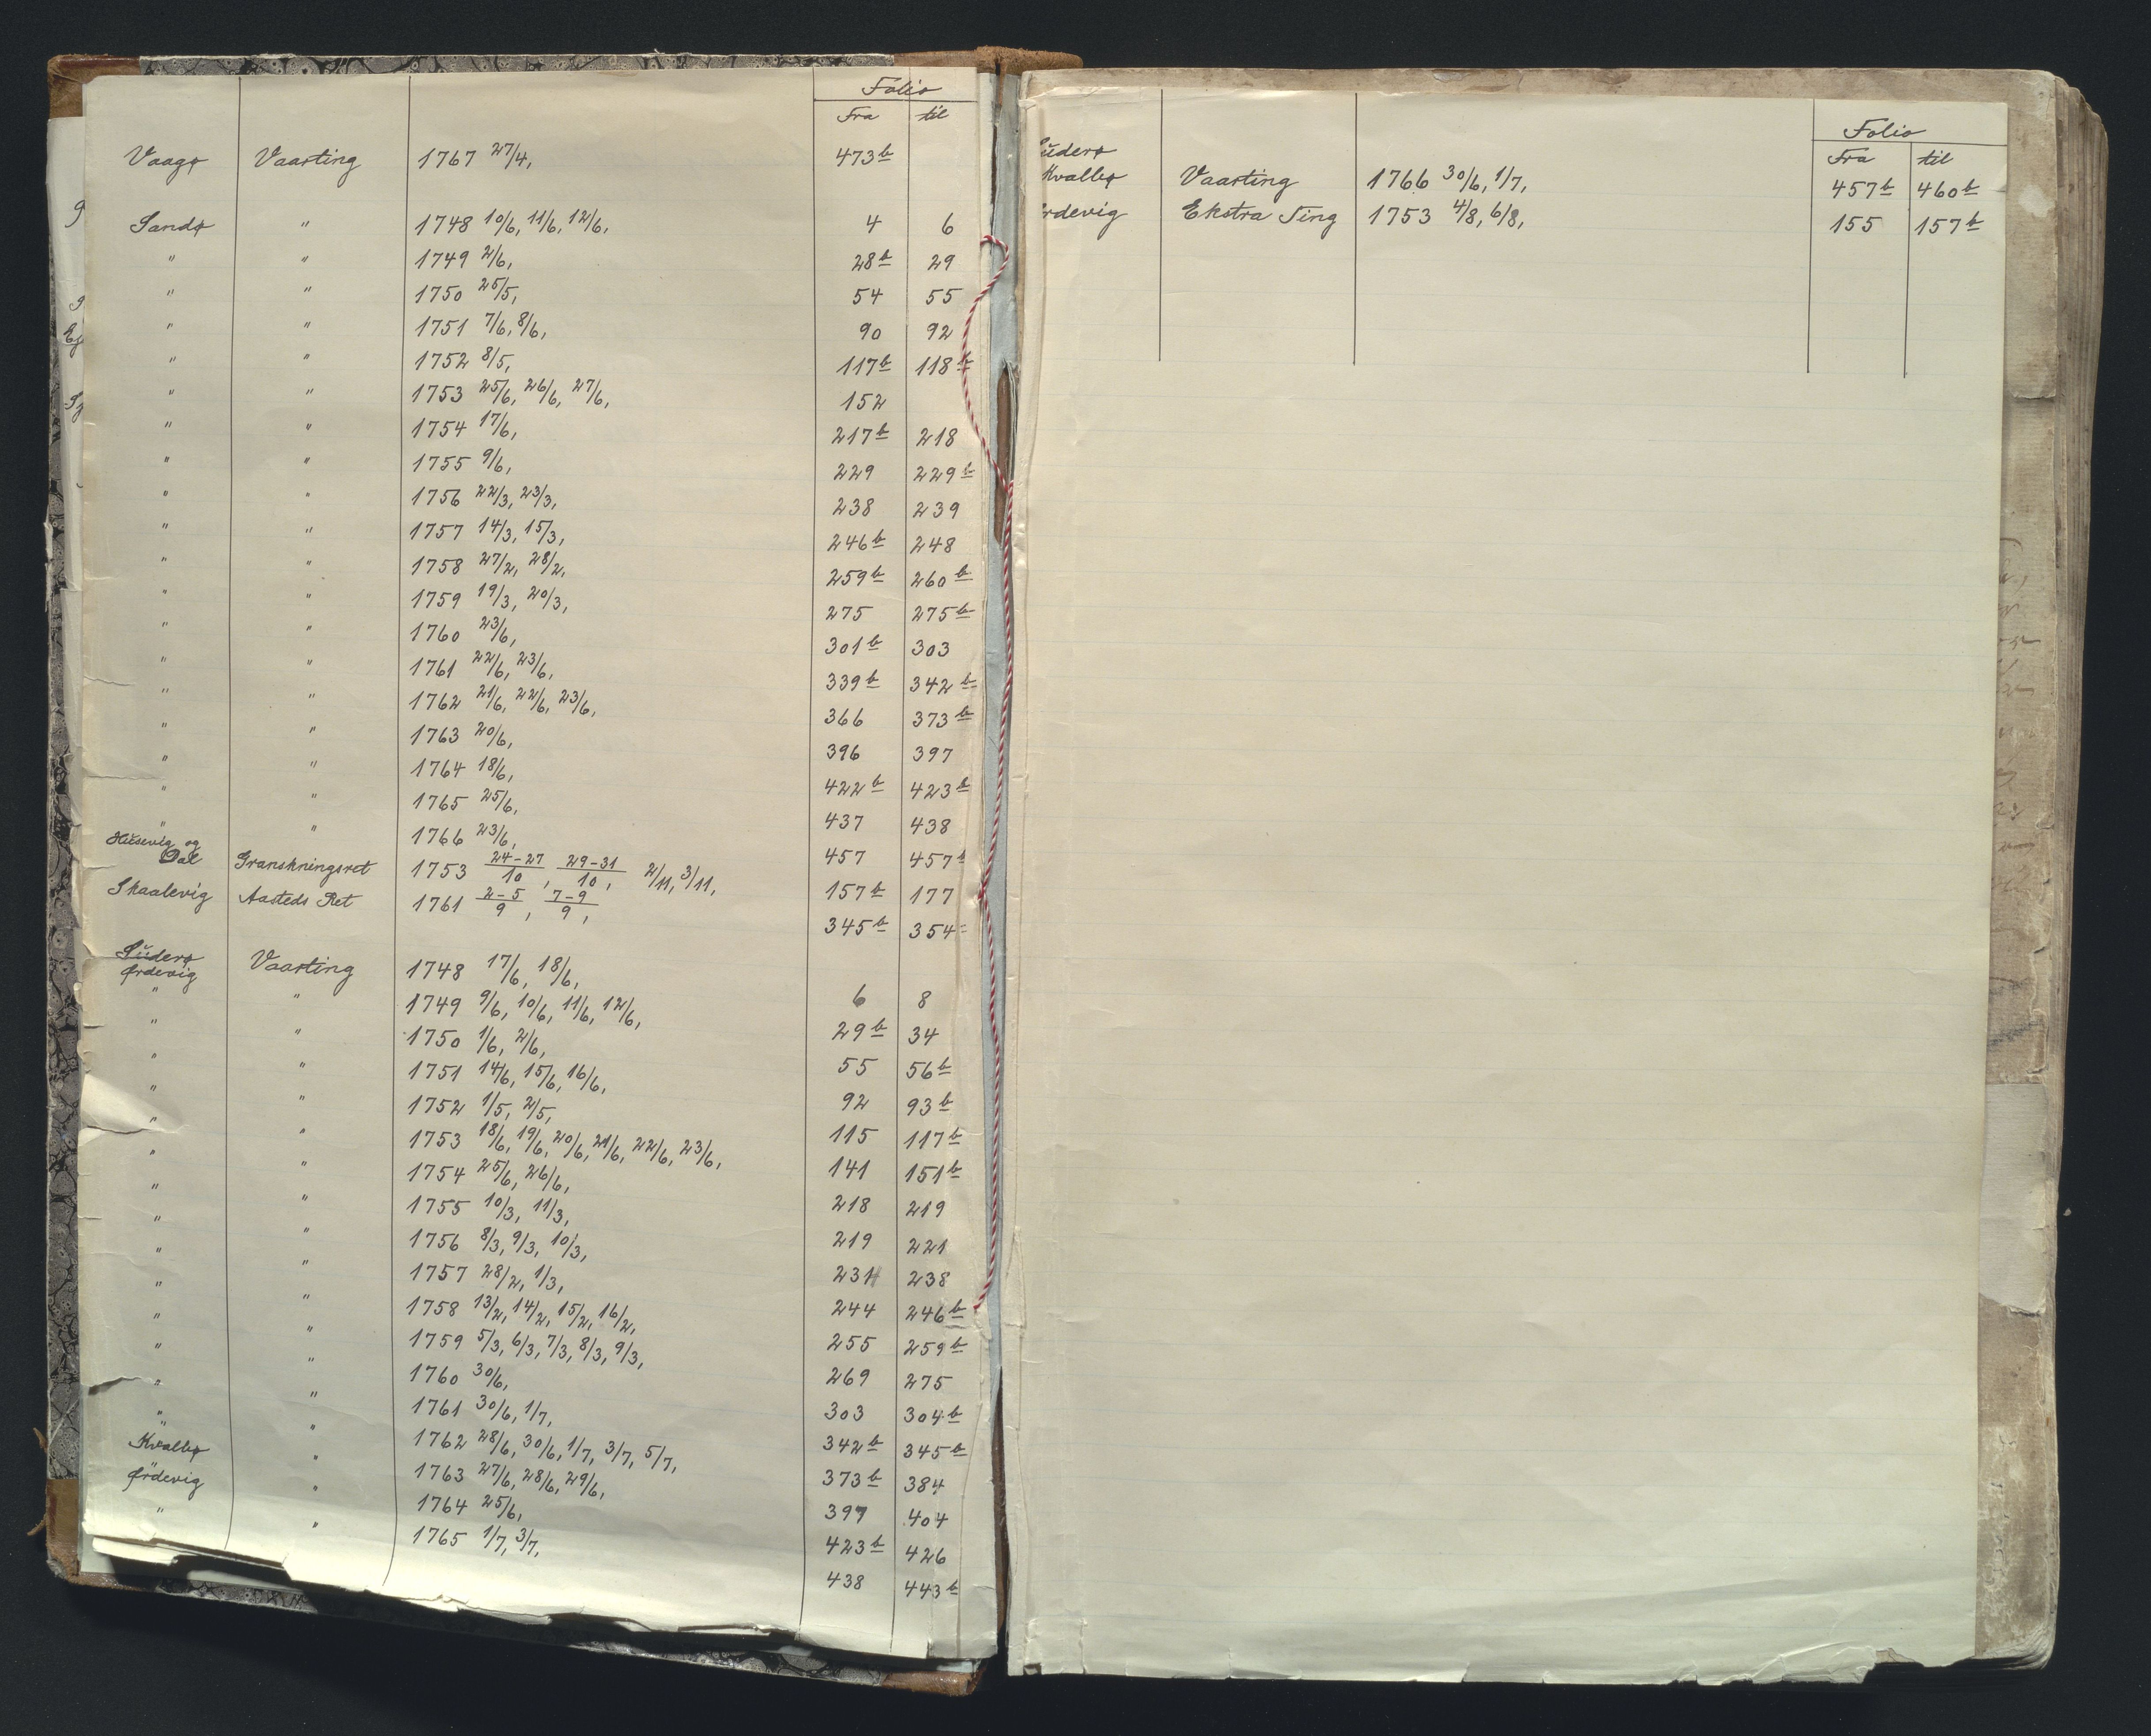 Folio
Fra til
Vaagø Vaarting 1767 27/4, 473b
Sandø " 1748 10/6, 11/6, 12/6, 4 6
" " 1749 2/6, 28b 29
" " 1750 25/5, 54 55
" " 1751 7/6, 8/6, 90 92
" " 1752 8/5, 117b 118b
" " 1753 25/6, 26/6, 27/6, 152
" " 1754 17/6, 217b 218
" " 1755 9/6, 229 229b
" " 1756 22/3, 23/3, 238 239
" " 1757 14/3, 15/3, 246b 248
" " 1758 27/2, 28/2, 259b 260b
" " 1759 19/3, 20/3, 275 275b
" " 1760 23/6, 301b 303
" " 1761 22/6, 23/6, 339b 342b
" " 1762 21/6, 22/6, 23/6, 366 373b
" " 1763 20/6, 396 397
" " 1764 18/6, 422b 423b
" " 1765 25/6, 437 438
" " 1766 23/6, 457 457b
Husevig og
Dal Granskningsret 1753 24-27/10, 29-31/10, 2/11, 3/11, 157b 177
Skaalevig Aasteds Ret 1761 2-5/9, 7-9/9, 345b 354
Suderø
Ørdevig Vaarting 1748 17/6, 18/6, 6 8
" " 1749 9/6, 10/6, 11/6, 12/6, 29b 34
" " 1750 1/6, 2/6, 55 56b
" " 1751 14/6, 15/6, 16/6, 92 93b
" " 1752 1/5, 2/5, 115 117b
" " 1753 18/6, 19/6, 20/6, 21/6, 22/6, 23/6, 141 151b
" " 1754 25/6, 26/6, 218 219
" " 1755 10/3, 11/3, 219 221
" " 1756 8/3, 9/3, 10/3, 231 238
" " 1757 28/2, 1/3, 244 246b
" " 1758 13/2, 14/2, 15/2, 16/2, 255 259b
" " 1759 5/3, 6/3, 7/3, 8/3, 9/3, 269 275
" " 1760 30/6, 303 304b
" " 1761 30/6, 1/7, 342b 345b
" " 1762 28/6, 30/6, 1/7, 3/7, 5/7, 373b 384
Kvalbø " 1763 27/6, 28/6, 29/6, 397 404
Ørdevig " 1764 25/6, 423b 426
" " 1765 1/7, 3/7, 438 443b
Folio
Fra til
uderø
Kvalbø Vaarting 1766 30/6, 1/7, 457b 460b
rdevig Ekstra Ting 1753 4/8, 6/8, 155 157b